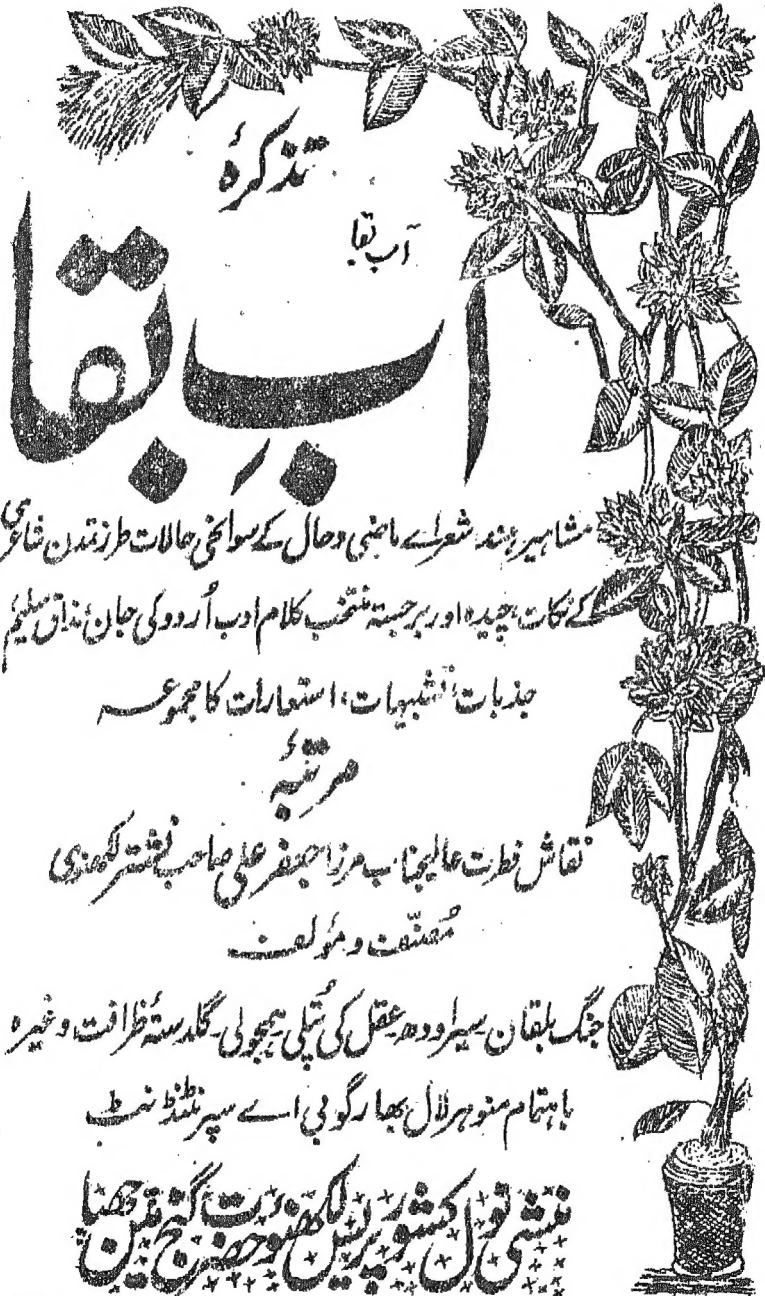 تذکرۂ
آب بقا
آبِ بقا
مشاہیر ہند، شعراے ماضی و حال کے سوانحی حالات طرز تمدن شاعری
کے نکات چیدہ اور برجستہ منتخب کلام ادب اُردو کی جان مذاق سلیم
جذبات، تشبیہات، استعارات کا مجموعہ
مرتبۂ
نقاش فطرت عالیجناب مرزا جعفر علی صاحب نشتر لکھنوی
مُصنّف و مؤلف
جنگ بلقان۔ سیر اودھ۔ عقل کی پُتلی۔ ہمجولی۔ گلدستۂ ظرافت وغیرہ
باہتمام منوہر لال بھارگو بی اے سپرنٹنڈنٹ
منشی نول کشور پریس لکھنؤ حضرت گنج میں چھپا